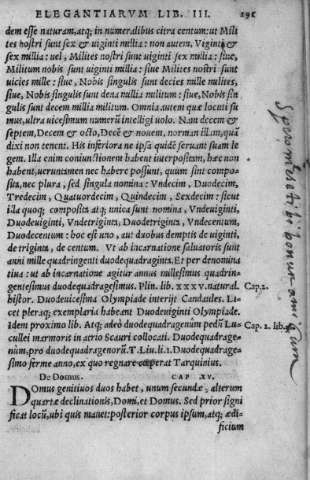 ELEGANTIARVM LIB. III. 291
dem esse naturam, atq; in numeralibus citra centum: ut Mili
tes nostri sunt sex & uiginti millia: non autem, Viginti &
sex millia: uel, Milites nostri sunt uiginti sex millia: siue,
Militum nobis sunt uiginti millia: siue Milites nostri sunt
uicies mille: siue, Nobis singulis sunt decies mille milites,
siue, Nobis singulis sunt dena millia militum: siue, Nobis sin
gulis sunt decem millia militum. Omnia autem quæ locuti su
mus, ultra uicesimum numerū intelligi uolo. Nam decem &
septem, Decem & octo, Decē & nouem, normam illam, quā
dixi non tenent. His inferiora ne ipsa quidē seruant suam le
gem. Illa enim coniunctionem habent interpositam, hæc non
habent, ueruntamen nec habere possunt, quum sint compo-
sita, nec plura, sed singula nomina: Vndecim, Duodecim,
Tredecim, Quatuordecim, Quindecim, Sexdecim: sicut
illa quoq; composita atq; unica sunt nomina, Vndeuiginti,
Duodeuiginti, Vndetriginta, Duodetriginta, Vndecentum,
Duodecentum: hoc est uno, aut duobus demptis de uiginti,
de triginta, de centum. Vt ab incarnatione saluatoris sunt
anni mille quadringenti duodequadraginta. Et per denomina
tiua: ut ab incarnatione agitur annus millesimus quadrin-
gentesimus duodequadragesimus. Plin. lib. XXXV. natural. Cap.2.
histor. Duodeuicesima Olympiade interijt Candaules. Li-
cet pleraq; exemplaria habeant Duodeuiginti Olympiade.
Idem proximo lib. Atq; adeò duodequadragenûm pedū Lu- Cap. 2. lib.
cullei marmoris in atrio Scauri collocati. Duodequadrage-
nûm, pro duodequadragenorū. T. Liu. li. 1. Duodequadrage-
simo ferme anno, ex quo regnare cœperat Tarquinius.
De Domus. CAP XV.
Domus genitiuos duos habet, unum secundæ, alterum
quartæ declinationis, Domi, et Domus. Sed prior signi
ficat locū, ubi quis manet: posterior corpus ipsum, atq; ædi-
ficium